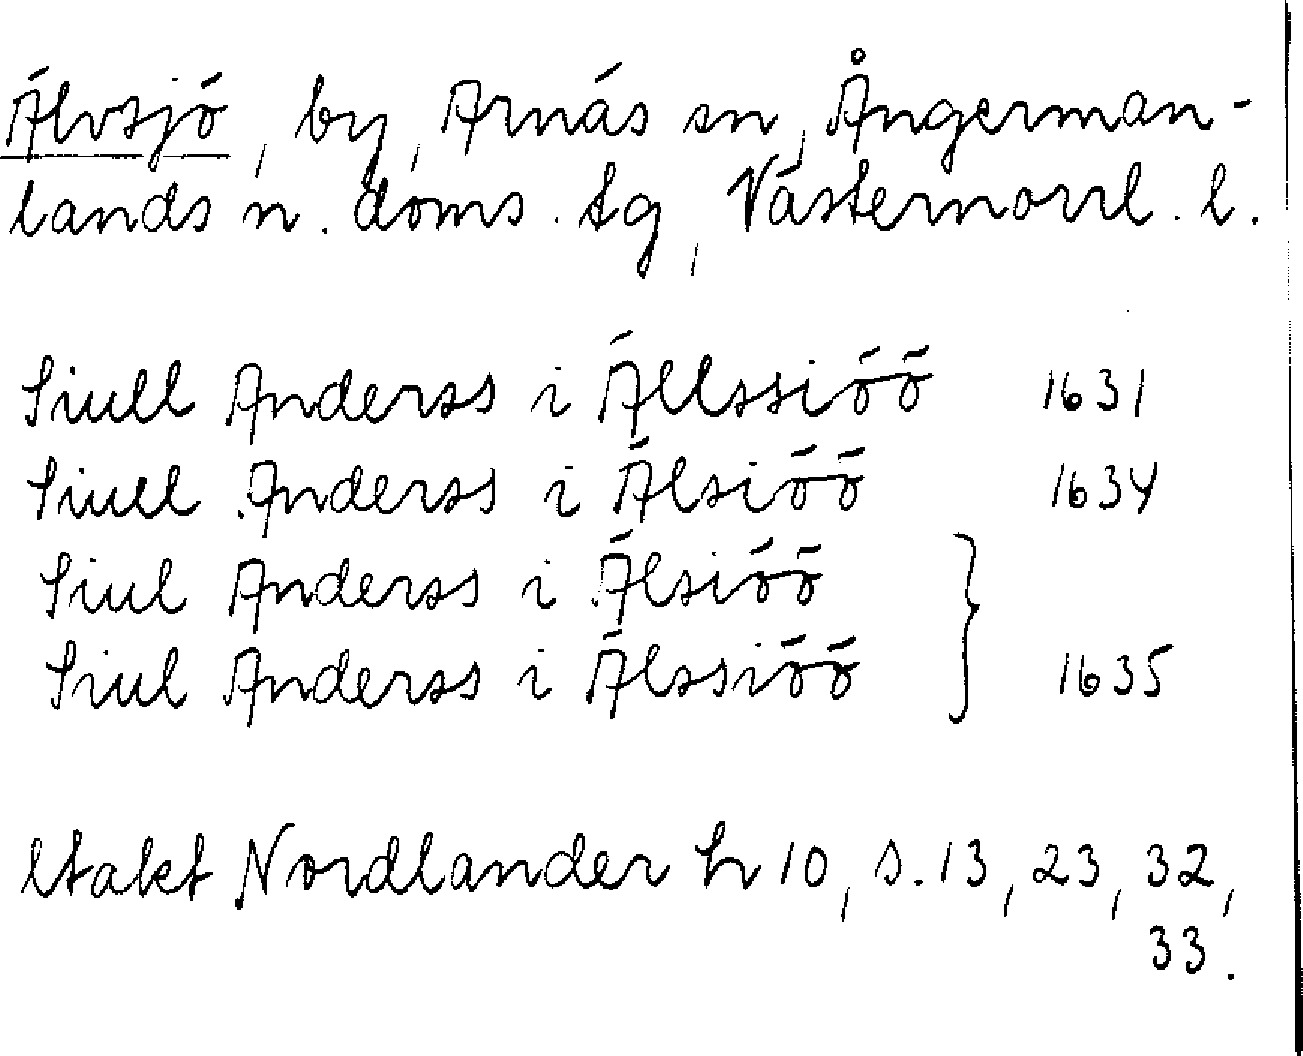 Älvsjö, by, Arnäs sn, Ångerman-
lands n. doms. tg, Västernorrl. l.
Siull Anderss i Ällssiöö 1631
Siull Anderss i Älsiöö 1634
Siul Anderss i Älsiöö
Siul Anderss i Älssiöö } 1635
Utakt Nordlander h 10, s. 13, 23, 32,
33.